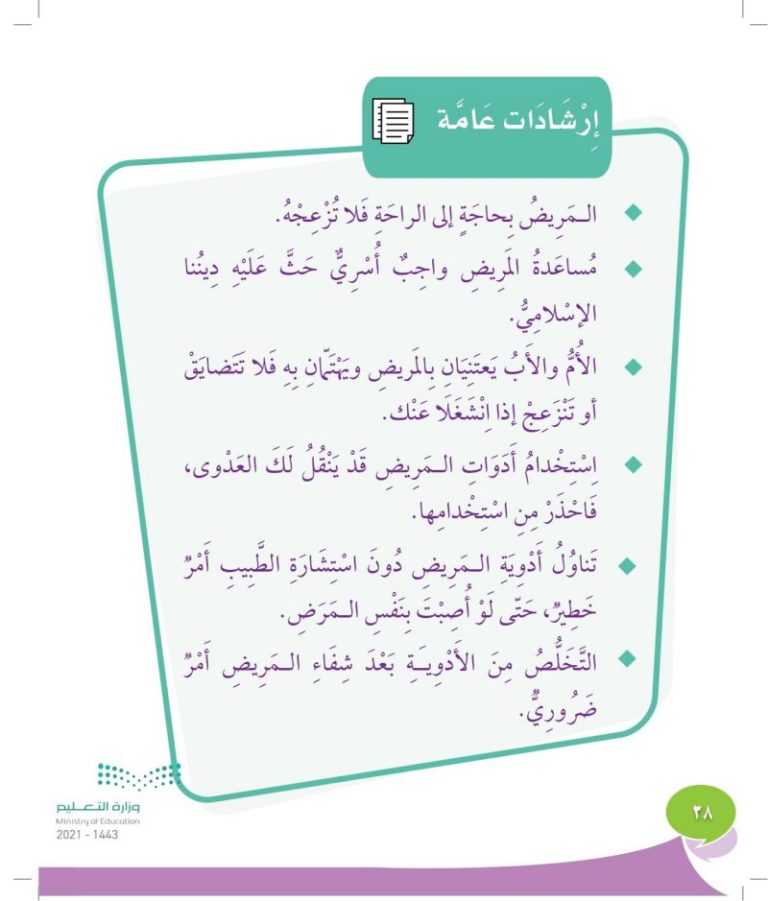 إِرْشَادَات عَامَّة
الـمَرِيضُ بِحاجَةٍ إلى الراحَةِ فَلا تُزْعِجْهُ.
مُساعَدةُ المَرِيضِ واجِبٌ أُسْرِيٌّ حَثَّ عَلَيْهِ دِينُنا
الإسْلامِيُّ.
الأُمُّ والأَبُ يَعتَنِيَانِ بِالمَريضِ ويَهْتَمّانِ بِهِ فَلا تَتَضايَقْ
أو تَنْزَعِجْ إذا اِنْشَغَلَا عَنْك.
اِسْتِخْدامُ أَدَوَاتِ الـمَرِيضِ قَدْ يَنْقُلُ لَكَ العَدْوى،
فَاحْذَرْ مِنِ اسْتِخْدامِها.
تَناوُلُ أَدْوِيَةِ الـمَرِيضِ دُونَ اسْتِشَارَةِ الطَّبِيبِ أَمْرٌ
خَطِيرٌ، حَتّى لَوْ أُصِبْتَ بِنَفْسِ الـمَرَضِ.
التَّخَلُّصُ مِنَ الأَدْوِيَـةِ بَعْدَ شِفَاءِ الـمَرِيضِ أَمْرٌ
ضَرُورِيٌّ.
وزارة التعـــليم
Ministry of Education
2021 - 1443
٣٨